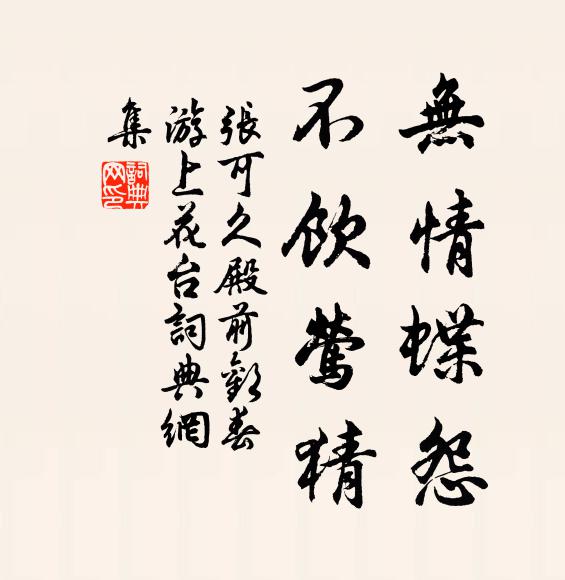 無情蝶怨
不飲鶯猜
張可久殿前歡春
游上花台詞典網
集
詞典
网印